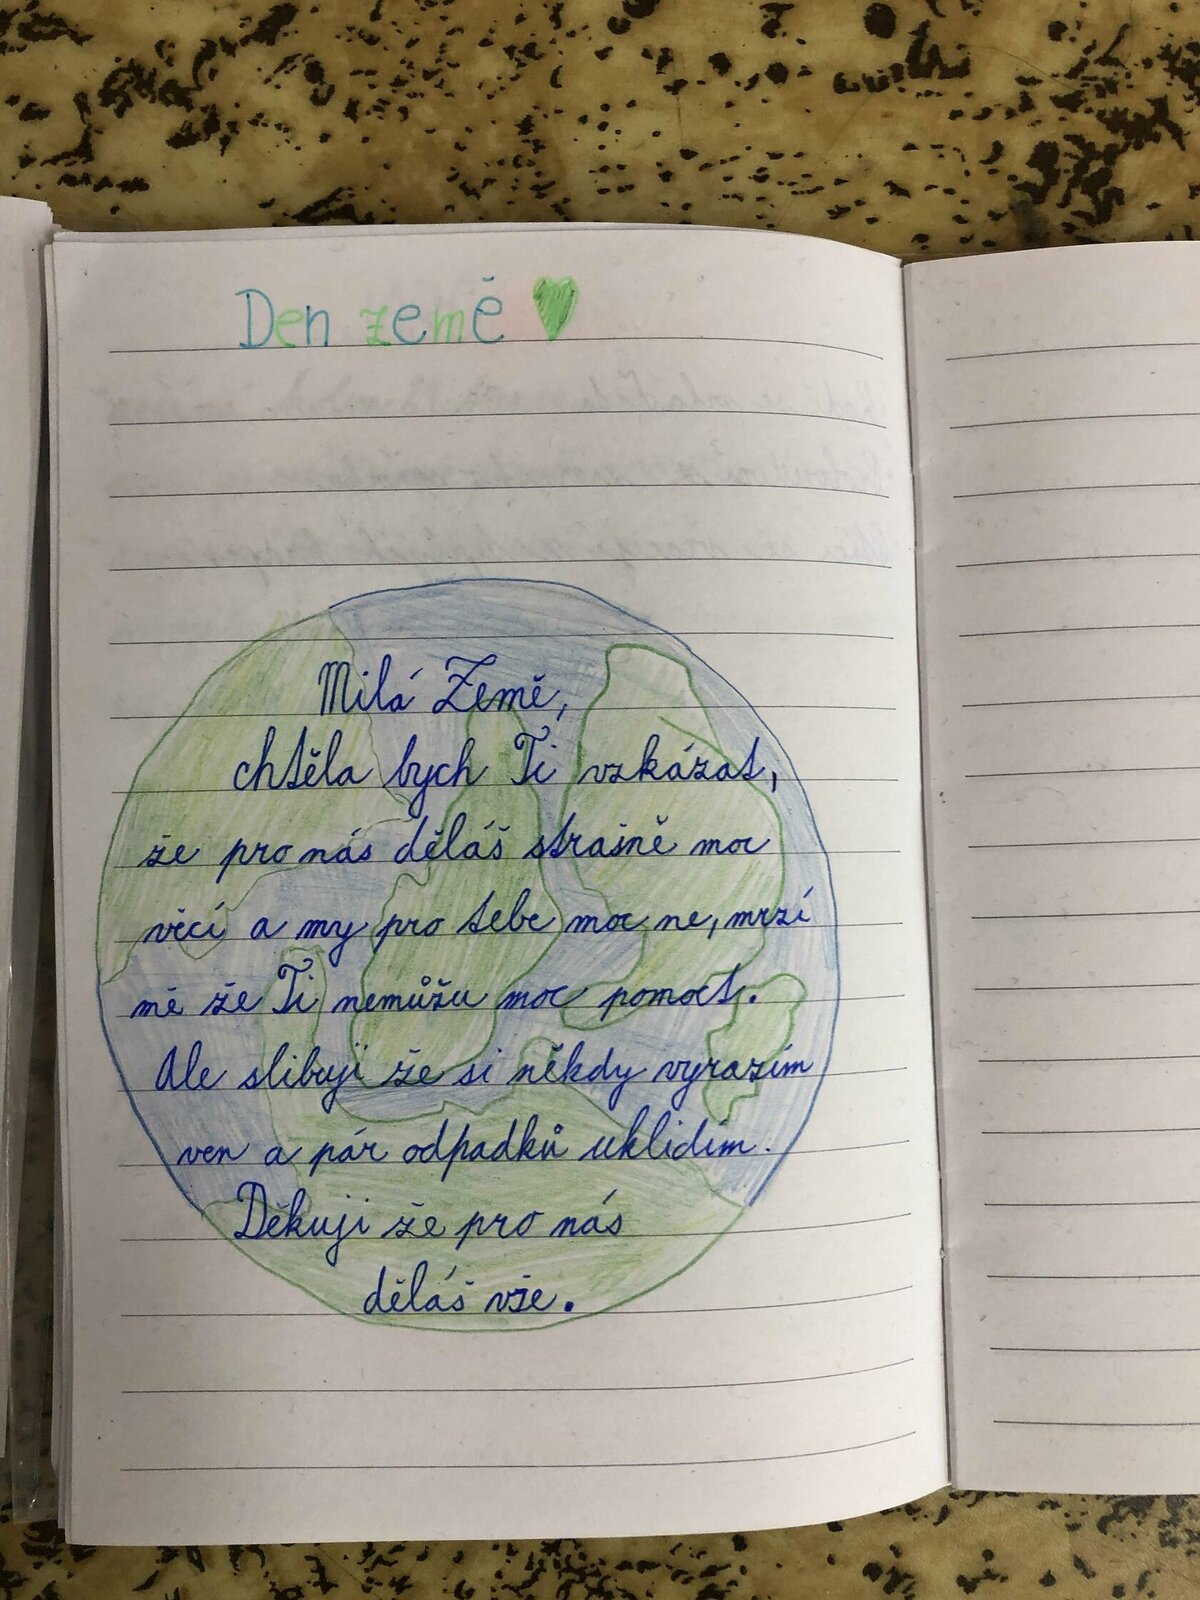 Den země
Milá Země,
chtěla bych Ti vzkázat,
že pro nás děláš strašně moc
věcí a my pro tebe moc ne, mrzí
mě že Ti nemůžu moc pomoct.
Ale slibuji že si někdy vyrazím
ven a pár odpadků uklidím.
Děkuji že pro nás
děláš vše.